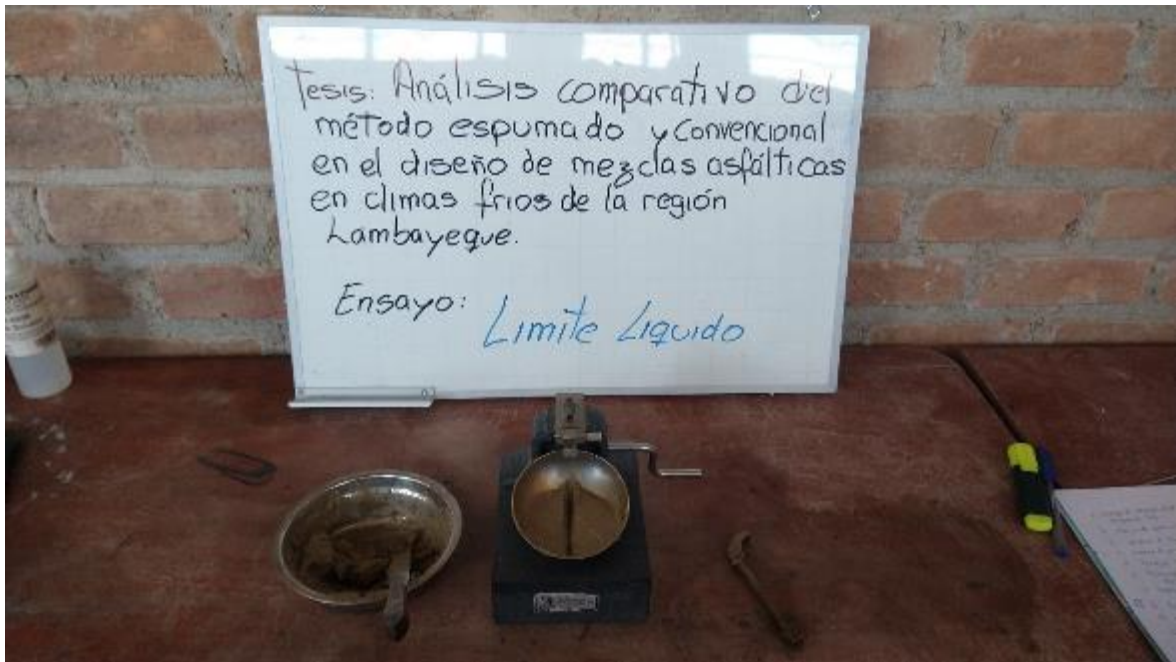 Tesis: Análisis comparativo del
método espumado y convencional
en el diseño de mezclas asfálticas
en climas frios de la región
Lambayeque.
Ensayo: Limite Liquido